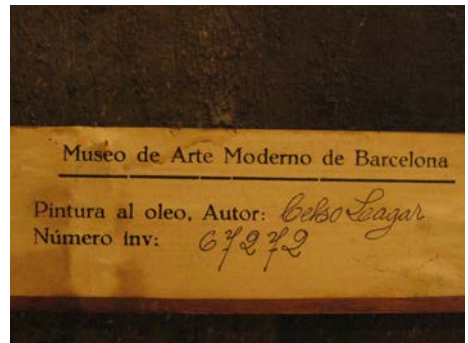 Museo de Arte Moderno de Barcelona
Pintura al oleo, Autor: Celso Lagar
Número inv: 67272